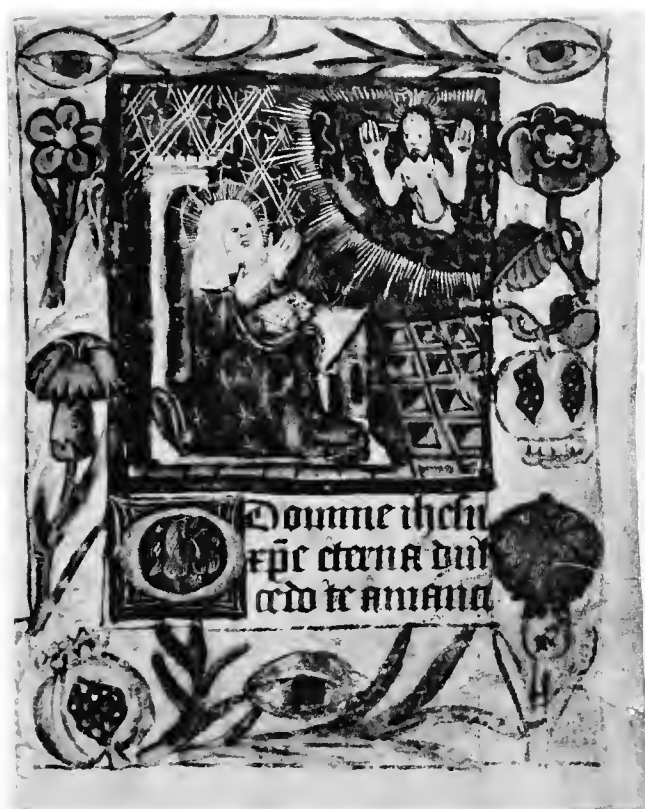 O Domine ihesu
xp̄e eterna dul
cedo te amanci